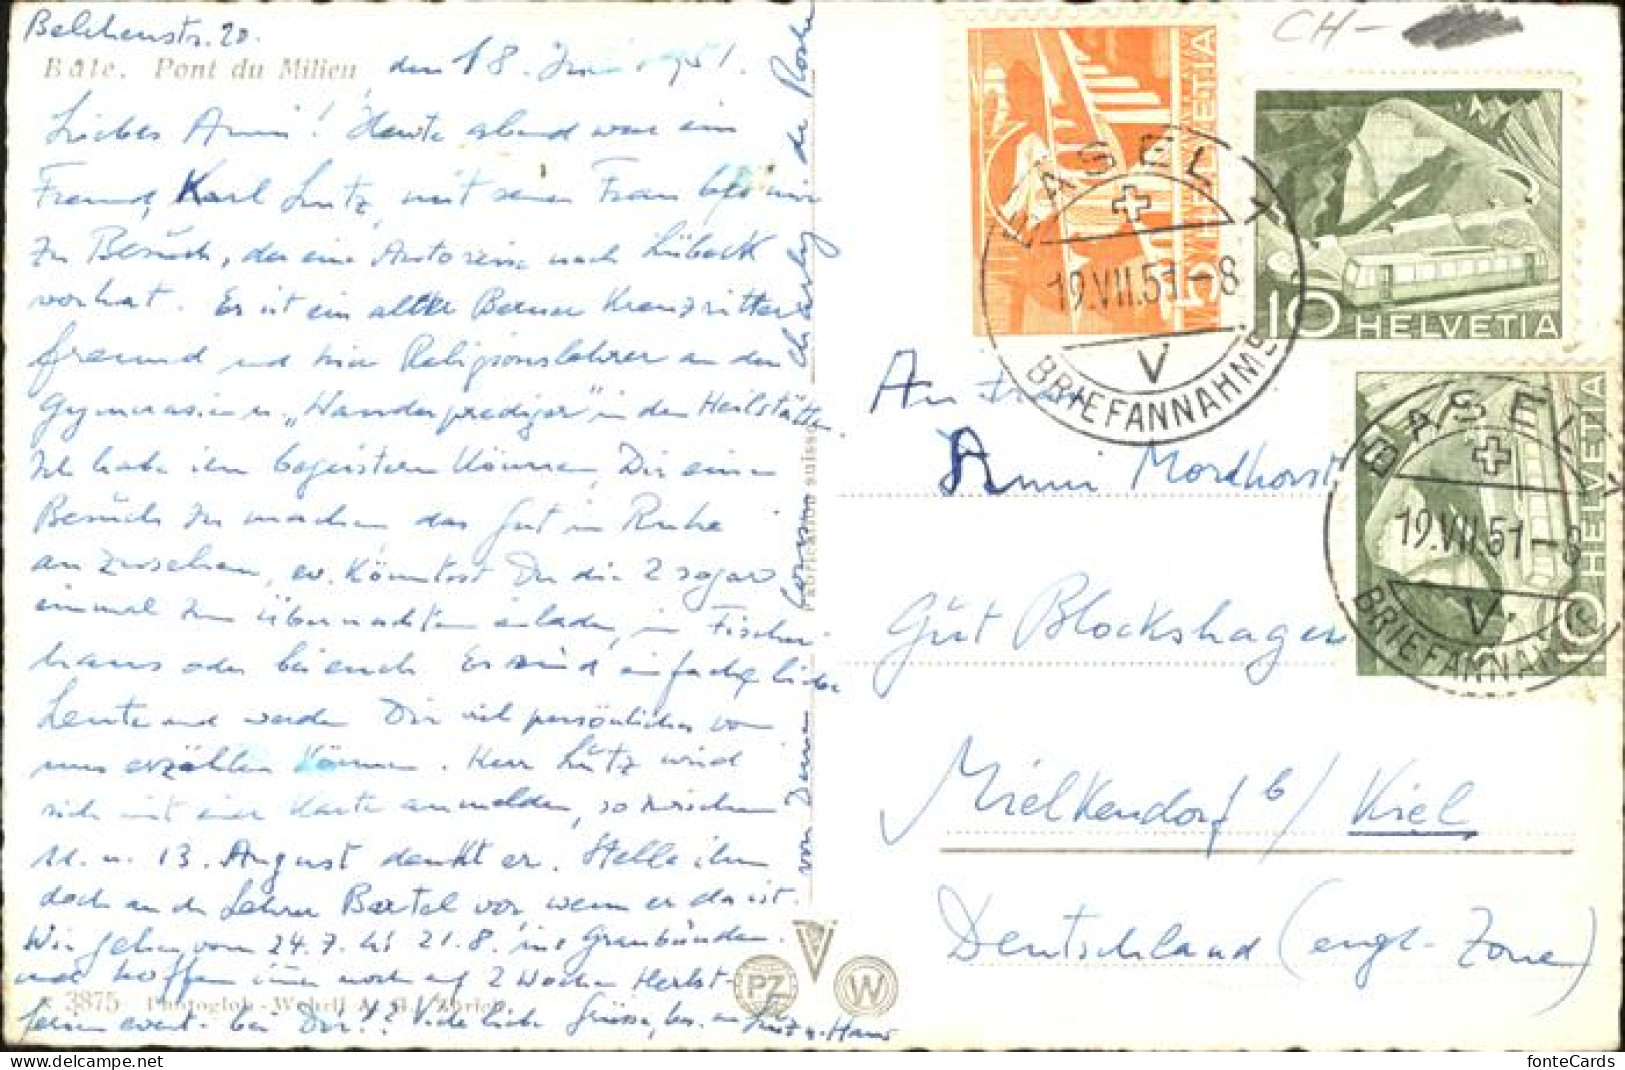 Belchenstr. 20.
Bâle. Pont du Milieu
den 18. Juli 1951.
Liebes Anni! Heute abend war ein
Freund, Karl Lutz, mit seiner Frau bei mir
zu Besuch, der eine Autoreise nach Lübeck
vorhat. Er ist ein alter Berner Kreuzritter
freund und hier Religionslehrer an den
Gymnasien u. „Wanderprediger" in den Heilstätten.
Ich habe ihn begeistern können, Dir einen
Besuch zu machen das Gut in Ruhe
anzusehen, ev. könntest Du die 2 sogar
einmal zum übernachten einladen, im Fischer-
haus oder bei euch. Es sind einfache, liebe
Leute und werden Dir viel persönliches von
uns erzählen können. Herr Lutz wird
sich mit einer Karte anmelden, so zwischen
11. u. 13. August denkt er. Stelle ihn
doch an d. Lehrer Bartel vor, wenn er da ist.
Wir gehen vom 24.7. bis 21.8. ins Graubünden.
und hoffen immer noch auf 2 Wochen Herbst-
ferien event. bei Dir!! Viele liebe Grüsse, bes. an u. Hans
von Deinem
3875 Photoglob-Wehrli A. G., Zürich
PZ
W
CH-
HELVETIA
5
10 HELVETIA
10 HELVETIA
BASEL 1
19.VII.51-8
V
BRIEFANNAHME
BASEL 1
19.VII.51-8
V
BRIEFANNAHME
An Frau
Anni Mordhorst
Gut Blockshagen
Mielkendorf b/ Kiel
Deutschland (engl. Zone)
fonteCards
delcampe.net